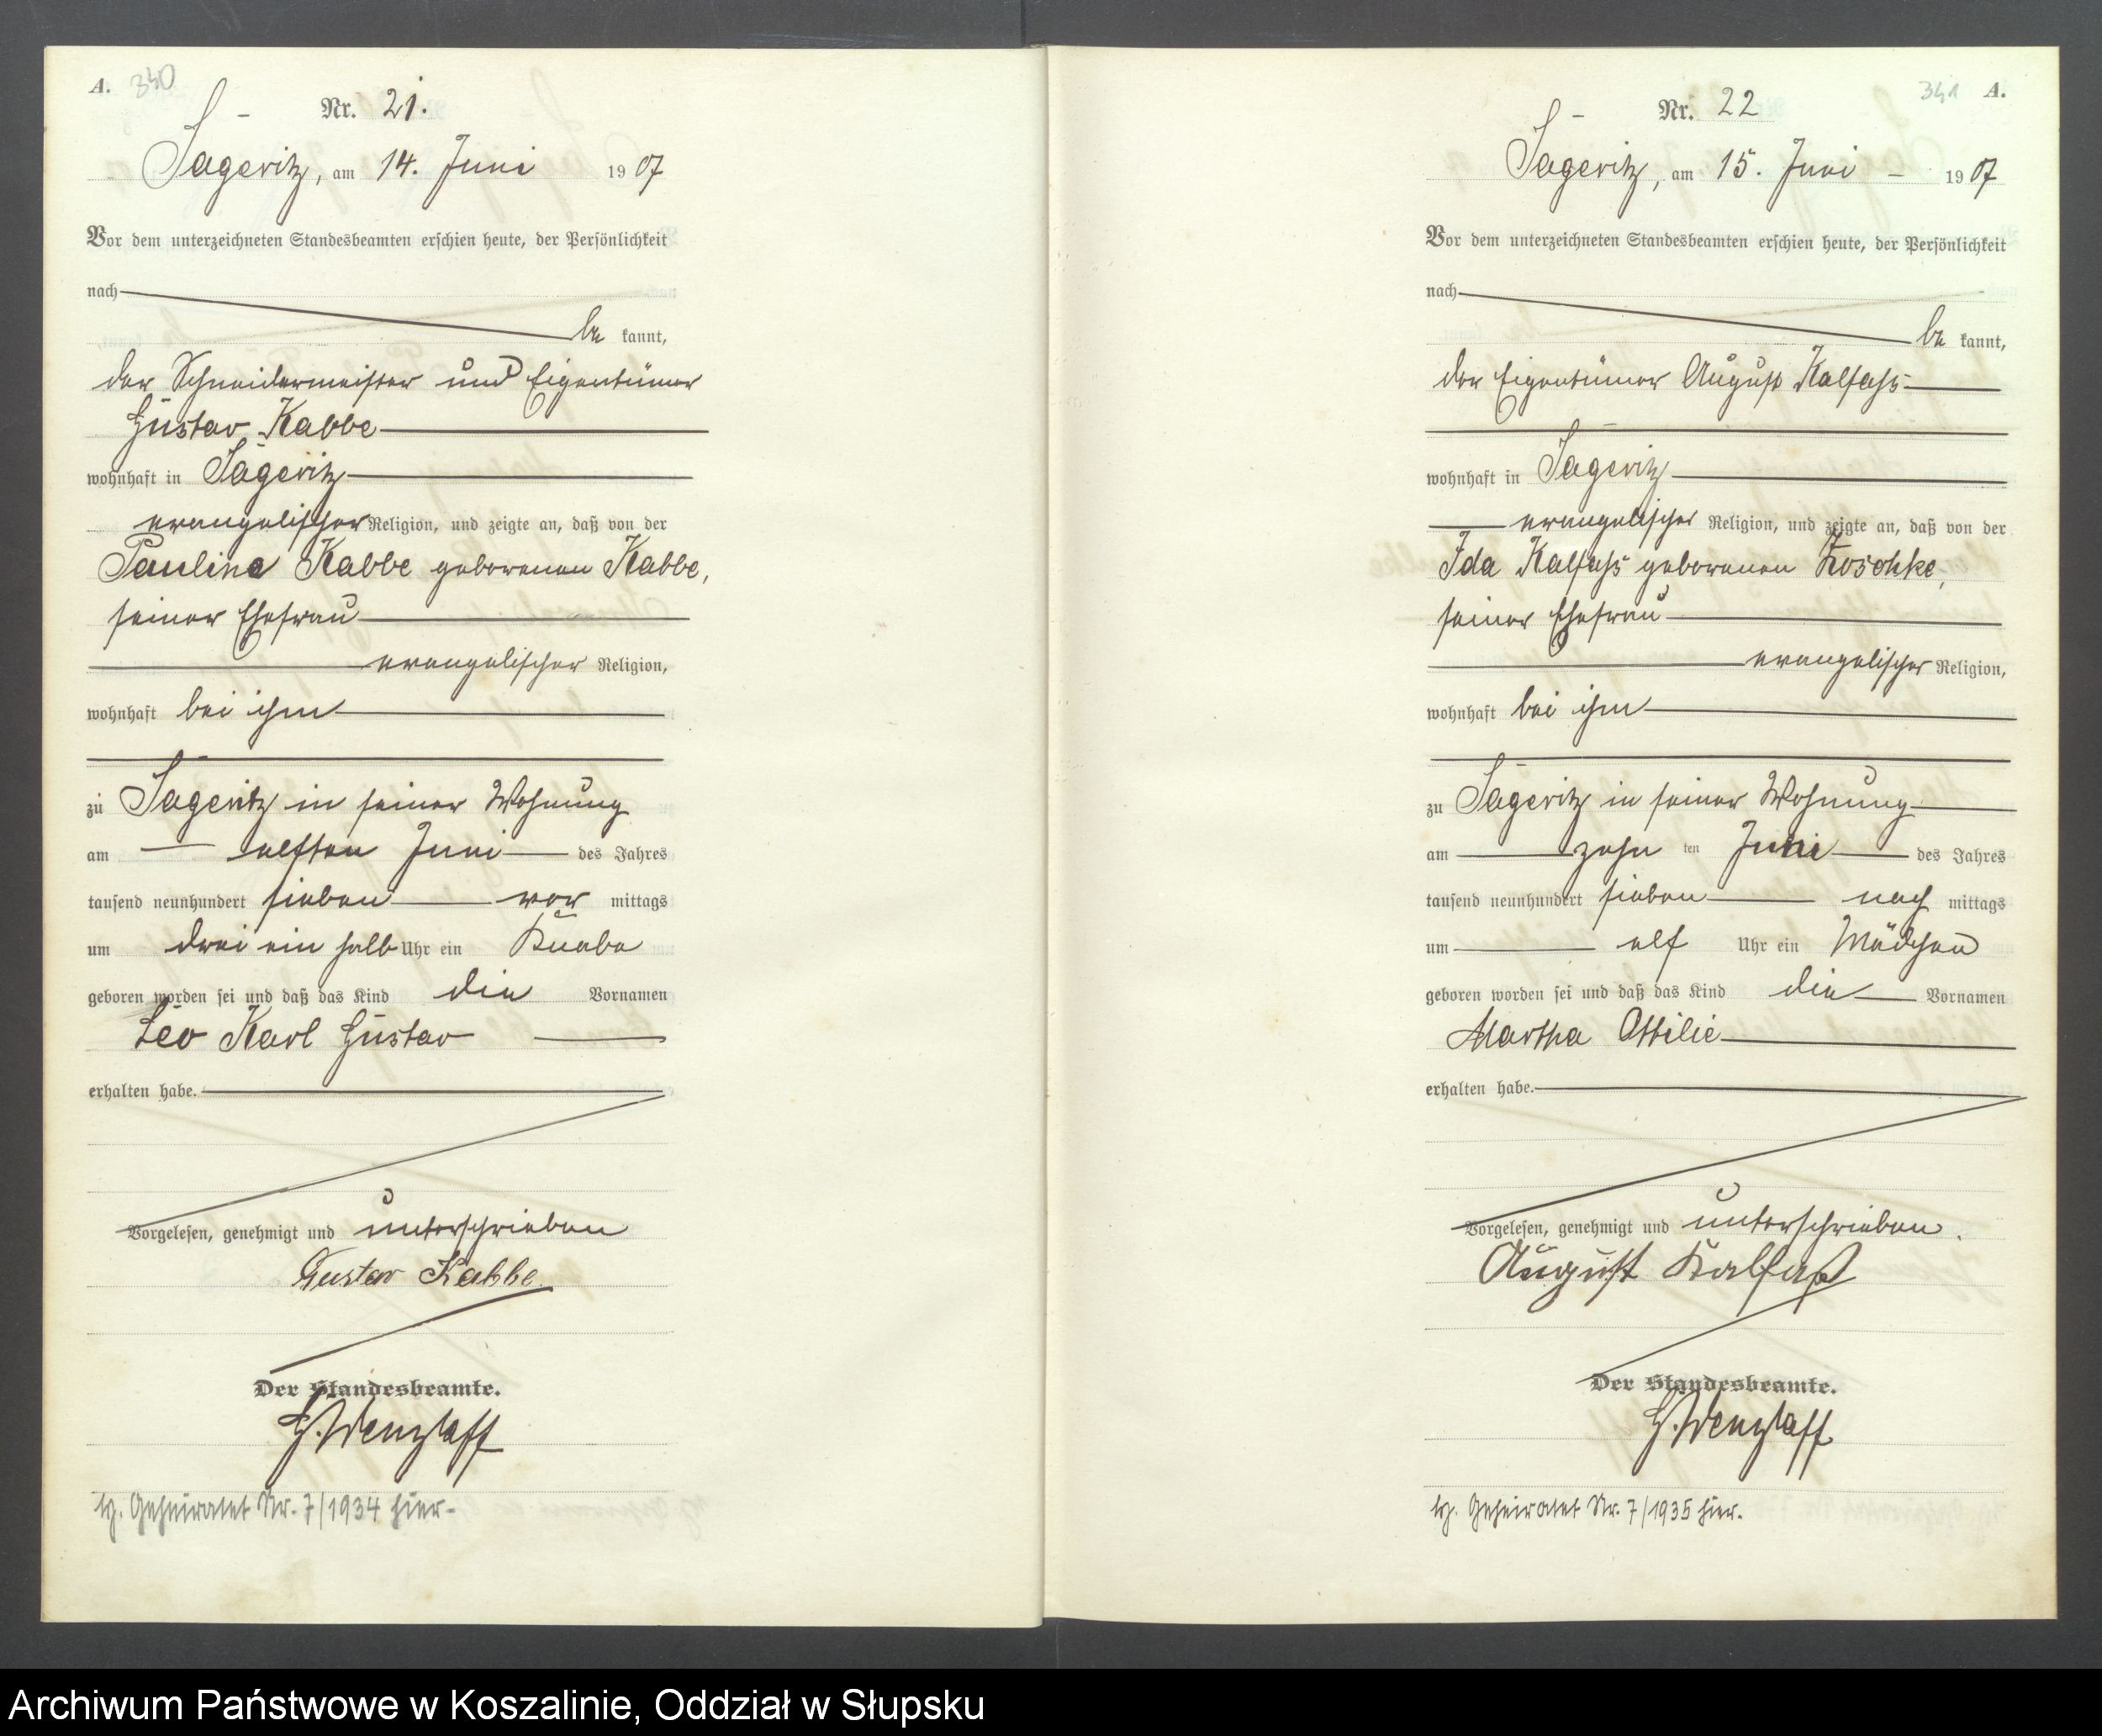 A. 340
Nr. 21.
Sageritz, am 14. Juni 1907
Vor dem unterzeichneten Standesbeamten erschien heute, der Persönlichkeit
nach
be kannt,
der Schneidermeister und Eigentümer
Gustav Kabbe
wohnhaft in Sageritz
evangelischer Religion, und zeigte an, daß von der
Pauline Kabbe geborenen Kabbe,
seiner Ehefrau
evangelischer Religion,
wohnhaft bei ihm
zu Sageritz in seiner Wohnung
am elften Juni des Jahres
tausend neunhundert sieben vor mittags
um drei ein halb Uhr ein Knabe
geboren worden sei und daß das Kind die Vornamen
Leo Karl Gustav
erhalten habe.
Vorgelesen, genehmigt und unterschrieben
Gustav Kabbe
Der Standesbeamte.
G. Wenzlaff
Geheiratet Nr. 7/1934 hier.
341 A.
Nr. 22
Sageritz, am 15. Juni 1907
Vor dem unterzeichneten Standesbeamten erschien heute, der Persönlichkeit
nach
be kannt,
der Eigentümer August Kalfahs
wohnhaft in Sageritz
evangelischer Religion, und zeigte an, daß von der
Ida Kalfahs geborenen Koschke,
seiner Ehefrau
evangelischer Religion,
wohnhaft bei ihm
zu Sageritz in seiner Wohnung
am zehn ten Juni des Jahres
tausend neunhundert sieben nach mittags
um elf Uhr ein Mädchen
geboren worden sei und daß das Kind die Vornamen
Martha Ottilie
erhalten habe.
Vorgelesen, genehmigt und unterschrieben.
August Kalfaß
Der Standesbeamte.
G. Wenzlaff
Geheiratet Nr. 7/1935 hier.
Archiwum Państwowe w Koszalinie, Oddział w Słupsku